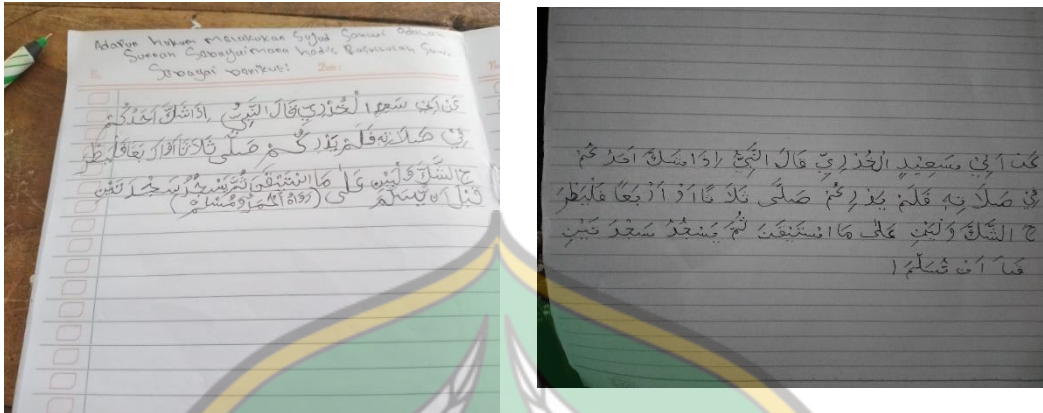 Adapun hukum melakukan Sujud Sahwi adalah
Sunnah Sebagaimana hadis Rasulullah Saw
Sebagai berikut:
عَنْ اَبِيْ سَعِيْدِ الْخُدْرِيِّ قَالَ النَّبِيُّ اِذَا شَكَّ اَحَدُكُمْ
فِيْ صَلَاتِهِ فَلَمْ يَدْرِ كُمْ صَلَّى ثَلَاثًا اَوْ اَرْبَعًا فَلْيَطْرَ
حِ الشَّكَّ وَلْيَبْنِ عَلَى مَا اسْتَيْقَنَ ثُمَّ يَسْجُدُ سَجْدَ تَيْنِ
قَبْلَ اَنْ يُسَلِّمَ (رَوَاهُ اَحْمَدُ وَمُسْلِمْ)
عَنْ اَبِيْ سَعِيْدٍ الْخُدْرِيِّ قَالَ النَّبِيُّ اِذَا شَكَّ اَحَدُ كُمْ
فِيْ صَلَا تِهِ فَلَمْ يَدْرِ كُمْ صَلَّى ثَلَا ثًا اَوْ اَرْبَعًا فَلْيَطْرَ
حِ الشَّكَّ وَلْيَبْنِ عَلَى مَا اسْتَيْقَنَ ثُمَّ يَسْجُدُ سَجْدَ تَيْنِ
اَنْ يُسَلِّمَ